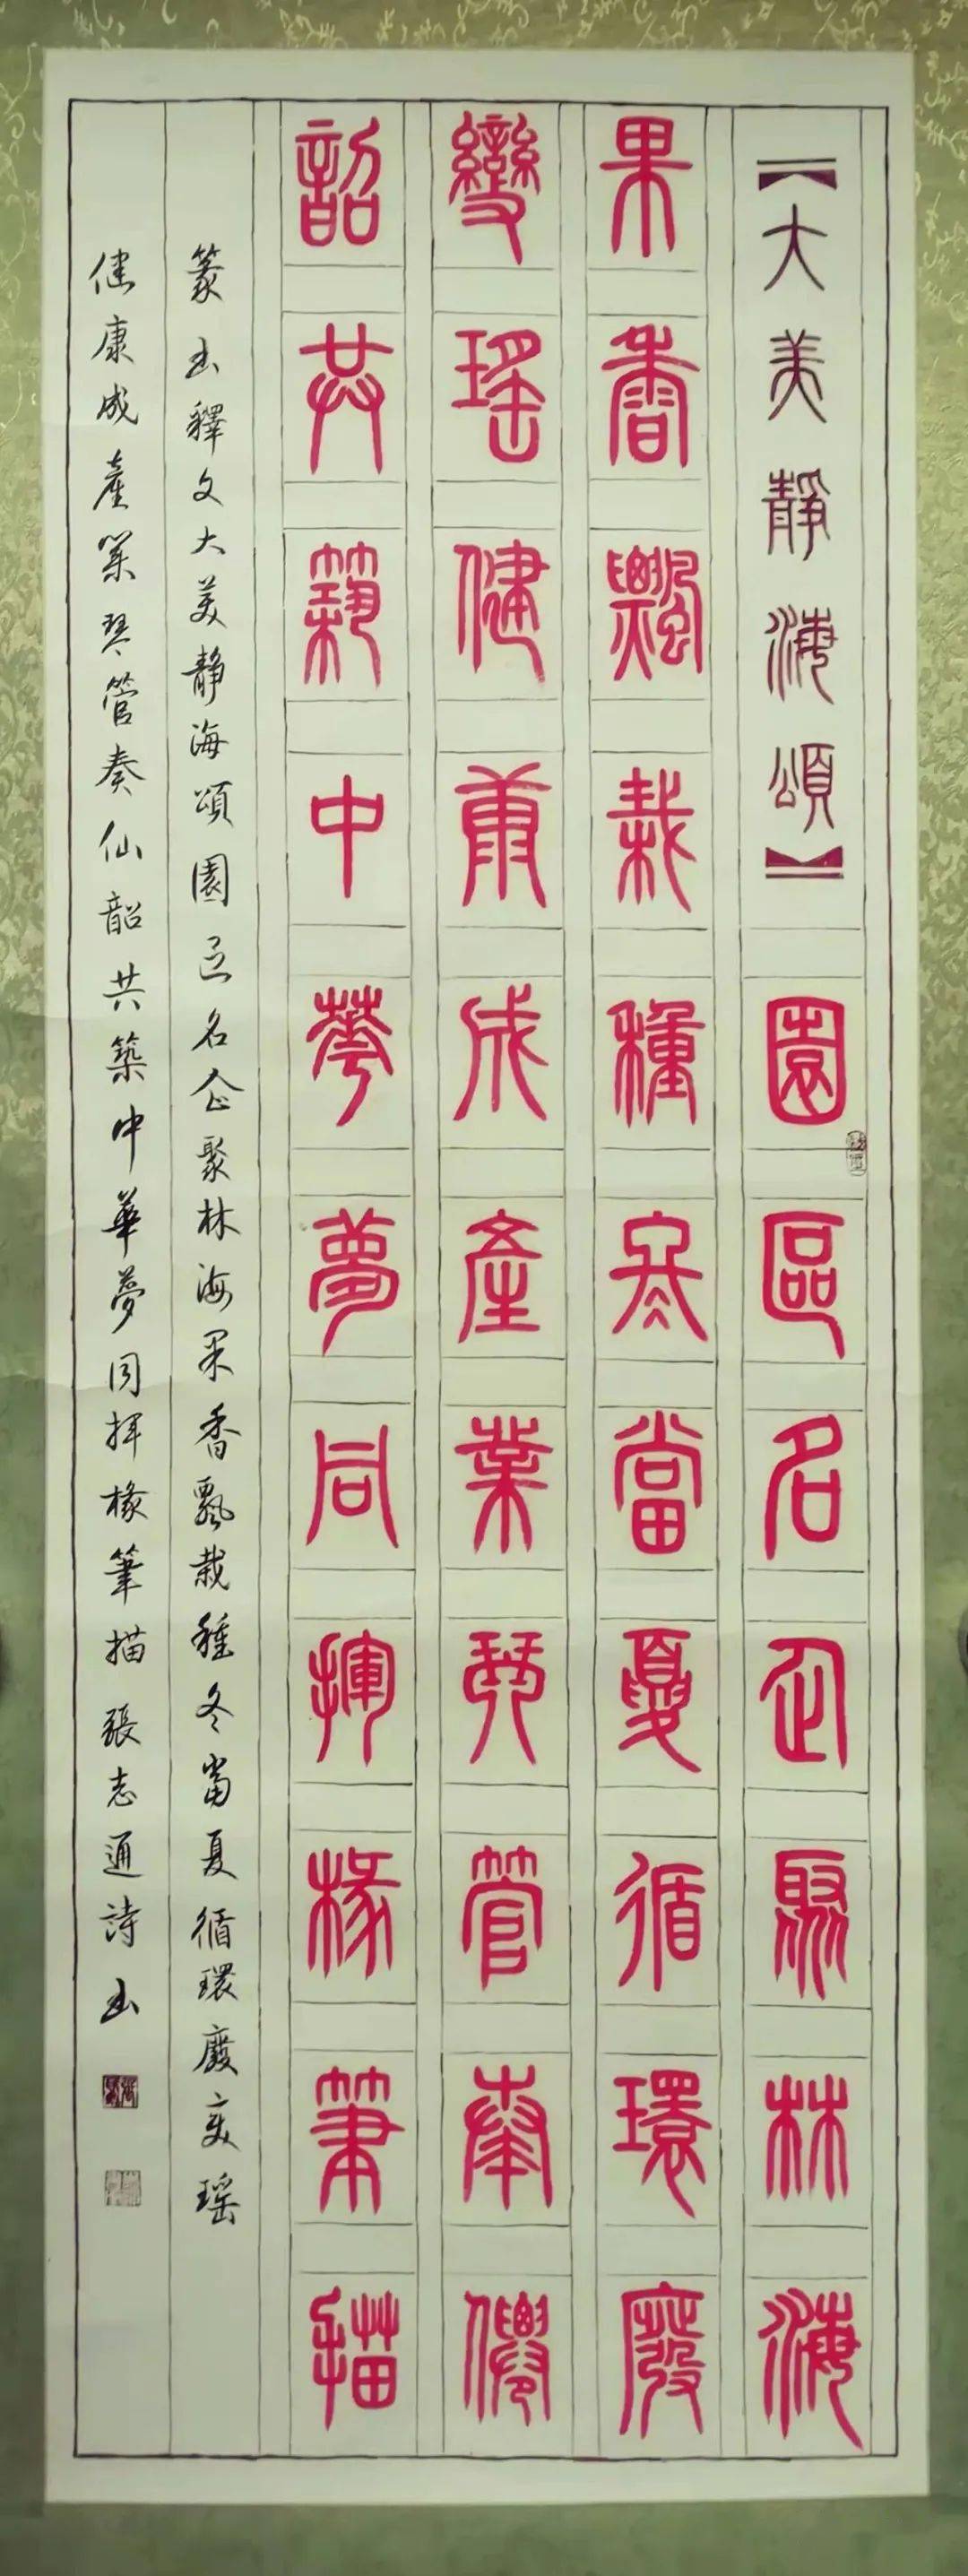 【大美靜海頌】園區名企聚林海
果香飄栽種冬當夏循環廢
變瑤健康成產業琴管奏仙
韶共築中華夢同揮椽筆描
篆书釋文大美靜海頌園区名企聚林海果香飄栽種冬當夏循環廢变瑤
健康成產業琴管奏仙韶共築中華夢同揮椽筆描張志通詩书